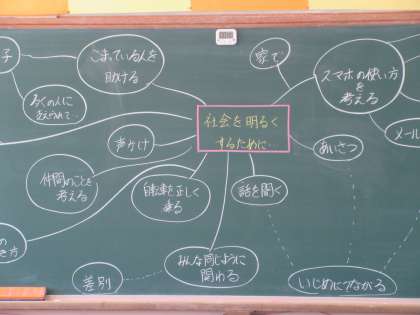 子
こまっている人を
助ける
家で
スマホの使い方
を
考える
多くの人に
社会を明るく
するために…
声かけ
あいさつ
メール
仲間のことを
考える
自転車を正しく
乗る
話を聞く
の
き方
みんな同じように
関わる
差別
いじめにつながる